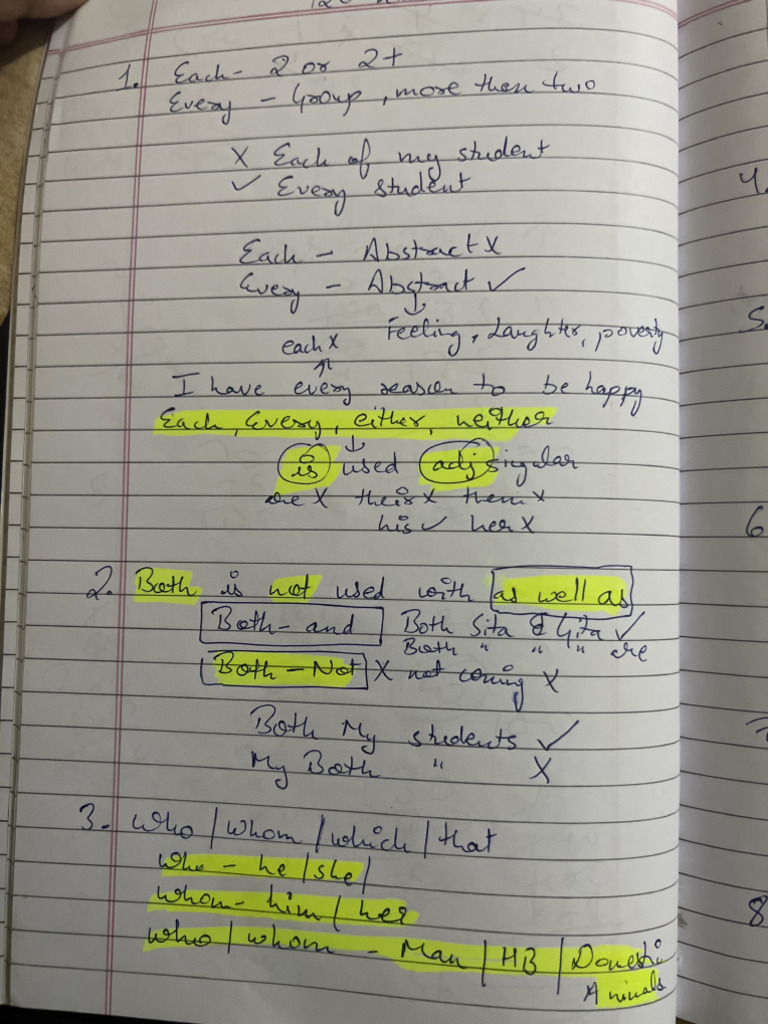 1. Each - 2 or 2+
Every - Group, more then two
X Each of my student
✓ Every student
Each - Abstract X
Every - Abstract ✓
↓
each X Feeling, Laughter, poverty
↑
I have every reason to be happy
Each, Every, either, neither
↓
is used adj singular
are X their X them X
his ✓ her X
2. Both is not used with as well as
Both - and Both Sita & Gita ✓
Both " " " are
Both - Not X not coming X
Both My students ✓
My Both " X
3. who / whom / which / that
who - he / she /
whom - him / her
who / whom - Man / HB / Domestic
Animals
4.
5.
6
8